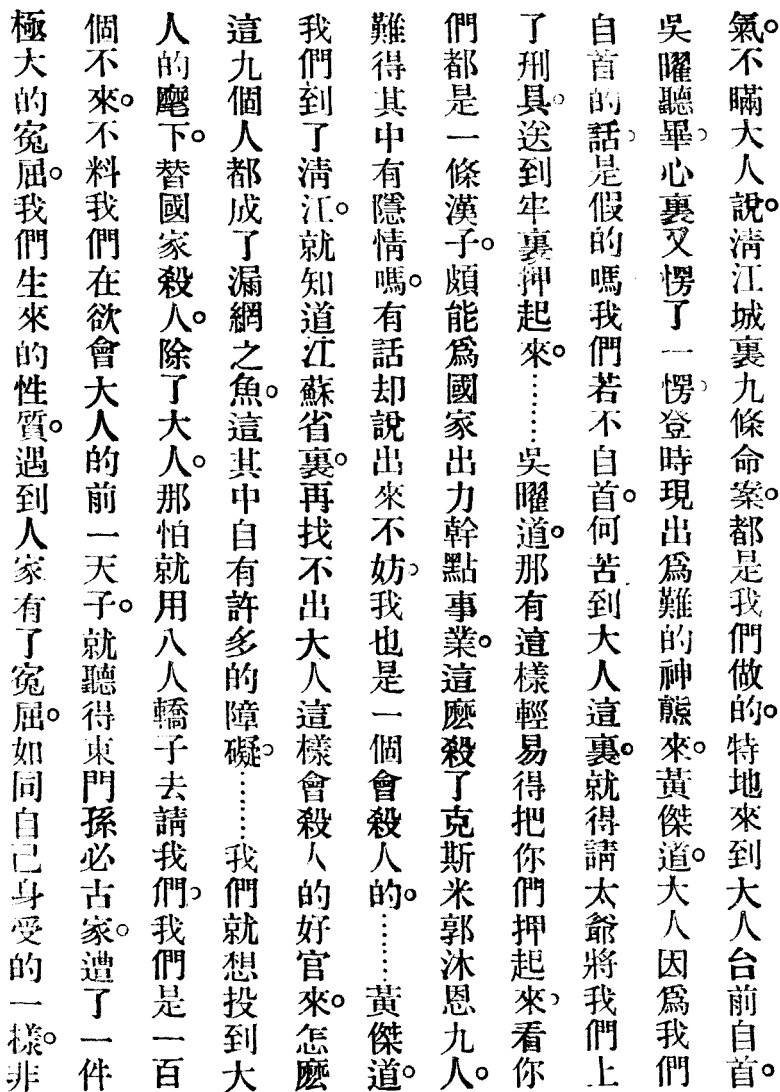 氣。不瞞大人說。淸江城裏九條命案。都是我們做的。特地來到大人台前自首。
吳曜聽畢。心裏又愣了一愣。登時現出爲難的神態來。黃傑道。大人因爲我們
自首的話。是假的嗎我們若不自首。何苦到大人這裏。就得請太爺將我們上
了刑具。送到牢裏押起來。……吳曜道。那有這樣輕易得把你們押起來。看你
們都是一條漢子。頗能爲國家出力幹點事業。這麽殺了克斯米郭沐恩九人。
難得其中有隱情嗎。有話却說出來不妨。我也是一個會殺人的。……黃傑道。
我們到了淸江。就知道江蘇省裏。再找不出大人這樣會殺人的好官來。怎麽
這九個人都成了漏網之魚。這其中自有許多的障礙。……我們就想投到大
人的麾下。替國家殺人。除了大人。那怕就用八人轎子去請我們。我們是一百
個不來。不料我們在欲會大人的前一天子。就聽得東門孫必古家。遭了一件
極大的寃屈。我們生來的性質。遇到人家有了寃屈。如同自己身受的一樣。非